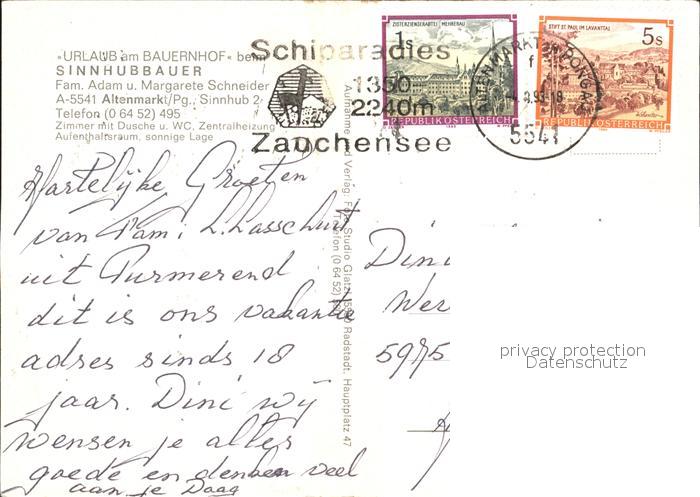 »URLAUB am BAUERNHOF« beim
SINNHUBBAUER
Fam. Adam u. Margarete Schneider
A-5541 Altenmarkt/Pg., Sinnhub 2
Telefon (0 64 52) 495
Zimmer mit Dusche u. WC, Zentralheizung
Aufenthaltsraum, sonnige Lage
Schiparadies
1350
2240m
Zauchensee
ZISTERZIENSERABTEI MEHRERAU
1s
REPUBLIK ÖSTERREICH
STIFT ST. PAUL IM LAVANTTAL
5s
REPUBLIK ÖSTERREICH
ALTENMARKT IM PONGAU
5541
Aufnahme und Verlag: Foto Studio Glatz, 5550 Radstadt, Hauptplatz 47
Telefon (0 64 52)
Hartelijke Groeten
van Fam:
uit Purmerend
dit is ons vakantie
adres sinds 18
jaar. Dini wij
wensen je alles
goede en denken veel
aan je Daag
Dini
Wer
5975
privacy protection
Datenschutz